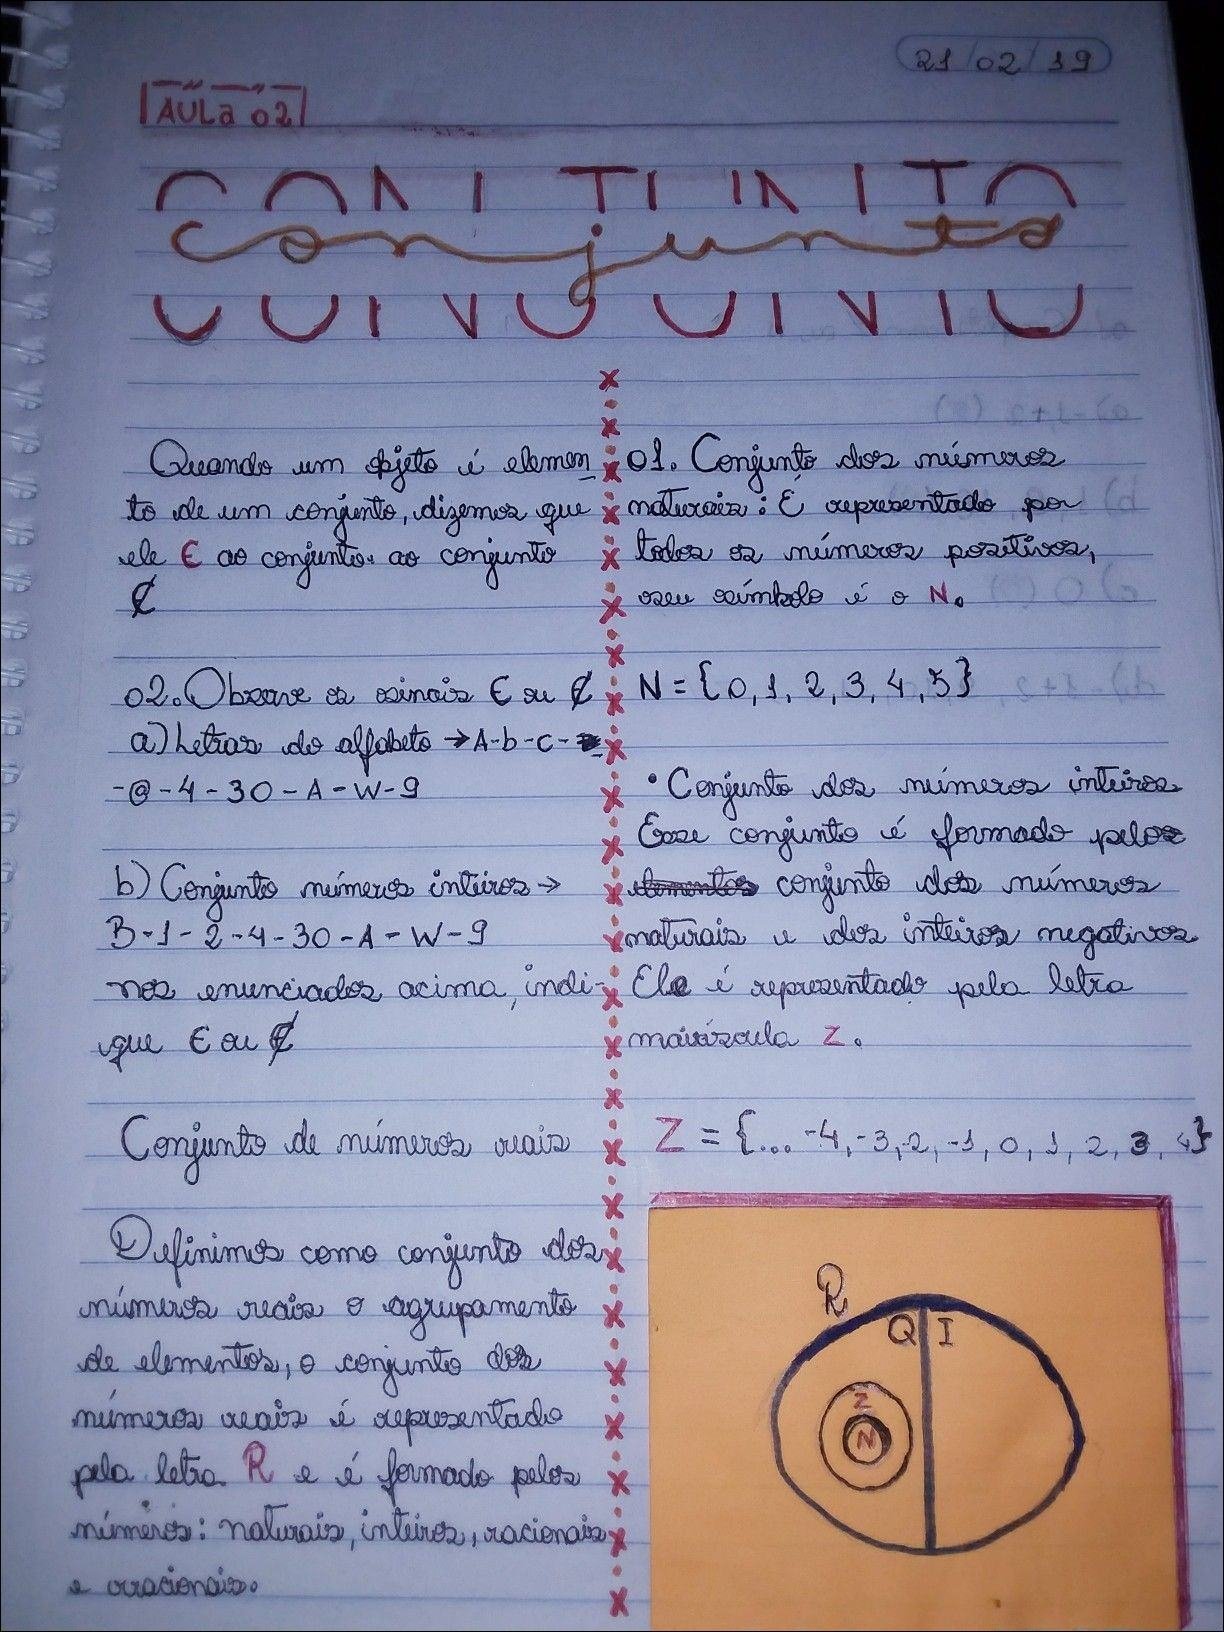 21/02/19
AULA 02
CONJUNTO
conjunto
Quando um objeto é elemen
to de um conjunto, dizemos que
ele ∈ ao conjunto. ao conjunto
∉
02. Observe os sinais ∈ ou ∉
a) Letras do alfabeto → A-b-c-
-@-4-30-A-W-9
b) Conjunto números inteiros →
B-1-2-4-30-A-W-9
nos enunciados acima, indi-
que ∈ ou ∉
Conjunto de números reais
Definimos como conjunto dos
números reais o agrupamento
de elementos, o conjunto dos
números reais é representado
pela letra R e é formado pelos
números: naturais, inteiros, racionais
e irracionais.
01. Conjunto dos números
naturais: É representado por
todos os números positivos,
seu símbolo é o N.
N = {0, 1, 2, 3, 4, 5}
• Conjunto dos números inteiros
Esse conjunto é formado pelos
elementos conjunto dos números
naturais e dos inteiros negativos
Ele é representado pela letra
maiúscula Z.
Z = {... -4, -3, -2, -1, 0, 1, 2, 3, 4}
R
Q I
Z
N